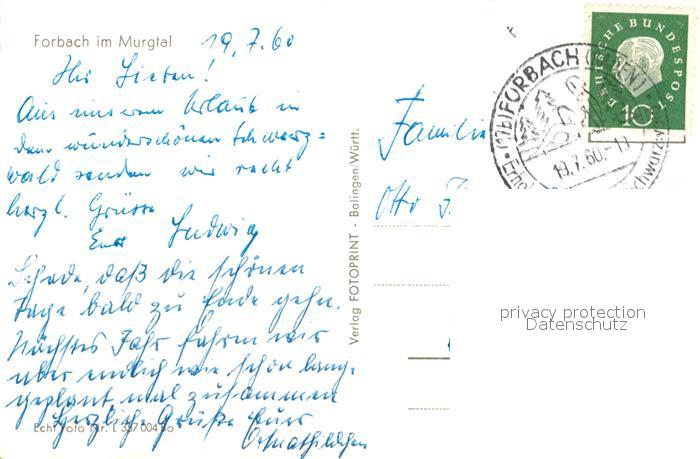 Forbach im Murgtal 19.7.60
Ihr Lieben!
Aus unserem Urlaub in
dem wunderschönen Schwarz=
wald senden wir recht
herzl. Grüsse
Euer Ludwig
Schade, daß die schönen
Tage bald zu Ende gehn.
Nächstes Jahr fahren wir
aber endlich wie schon lang
geplant mal zusammen
Herzliche Grüße Euer
Echt Foto Nr. L
Verlag FOTOPRINT - Balingen/Württ.
Familie
Otto
(17b) FORBACH (BADEN)
19.7.60.-11
DEUTSCHE BUNDESPOST
10
privacy protection
Datenschutz